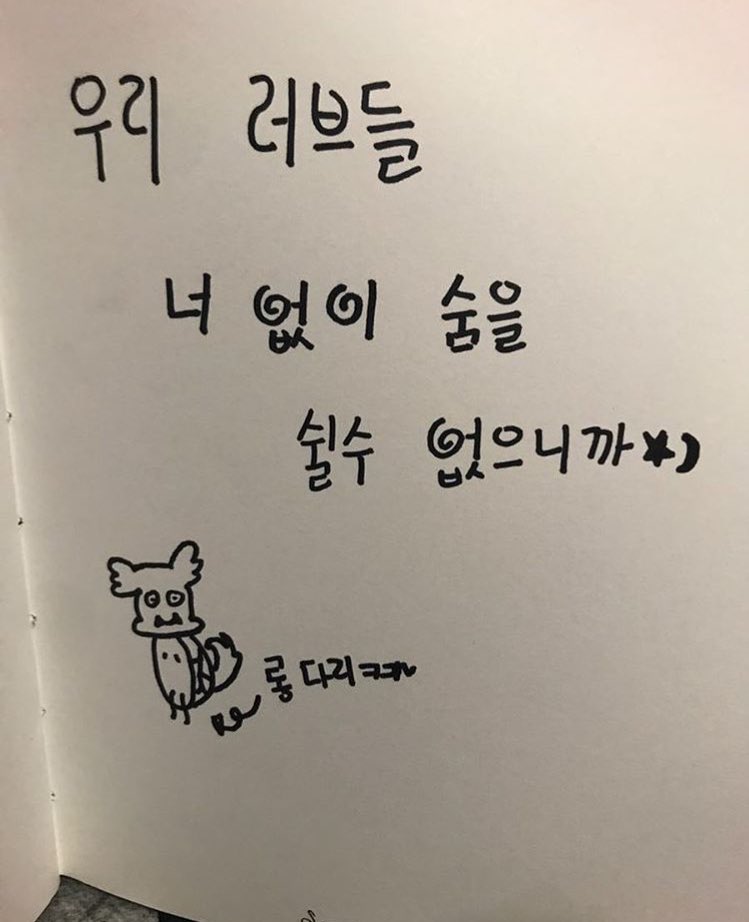 우리 러브들
너 없이 숨을
쉴수 없으니까
롱다리ㅋㅋ